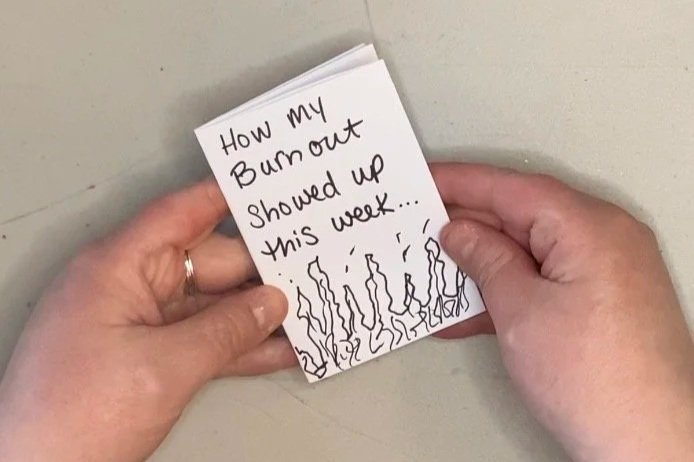 How my
Burnout
Showed up
this week...